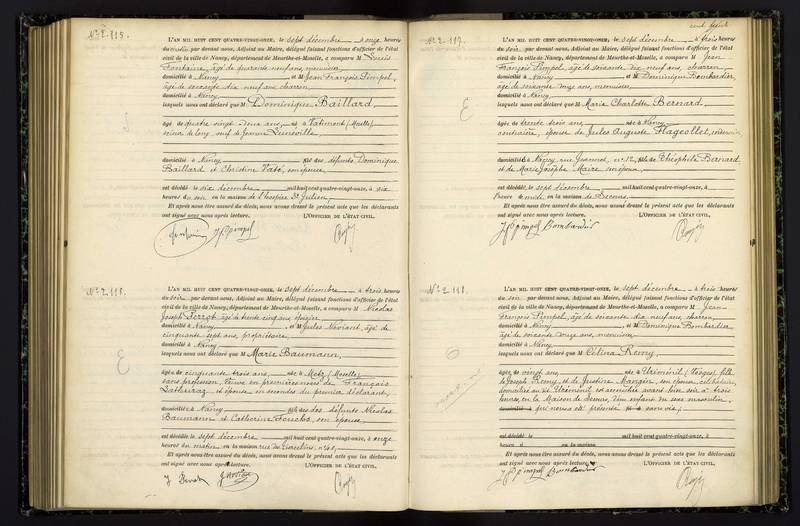 N° 2.115.
L'AN MIL HUIT CENT QUATRE-VINGT-ONZE, le sept décembre à onze heures
du matin par devant nous, Adjoint au Maire, délégué faisant fonctions d'officier de l'état
civil de la ville de Nancy, département de Meurthe-et-Moselle, a comparu M Louis
Fontaine, âgé de quarante neuf ans, menuisier
domicilié à Nancy et M Jean François Pimpel,
âgé de soixante dix neuf ans, charron
domicilié à Nancy
lesquels nous ont déclaré que M Dominique Baillard,
âgé de quatre vingt ans, né à Vatimont (Moselle)
veuf de Jeanne Lunéville
domicilié à Nancy fils des défunts Dominique
Baillard et Christine Vaté, son épouse
est décédé le six décembre mil huit cent quatre-vingt-onze, à six
heures du soir en la maison de l'hospice St Julien
Et après nous être assuré du décès, nous avons dressé le présent acte que les déclarants
ont signé avec nous après lecture. L'OFFICIER DE L'ÉTAT CIVIL,
N° 2.116.
L'AN MIL HUIT CENT QUATRE-VINGT-ONZE, le sept décembre à trois heures
du soir par devant nous, Adjoint au Maire, délégué faisant fonctions d'officier de l'état
civil de la ville de Nancy, département de Meurthe-et-Moselle, a comparu M Nicolas
Joseph Perrot, âgé de trente cinq ans,
domicilié à Nancy et M Jules Noviant, âgé de
cinquante sept ans, propriétaire
domicilié à Nancy
lesquels nous ont déclaré que M Marie Baumann,
âgée de cinquante trois ans née à Metz (Moselle)
sans profession, veuve en premières noces de François
et épouse en secondes du premier déclarant,
domiciliée à Nancy fille des défunts Nicolas
Baumann et Catherine Fouchs, son épouse
est décédé le sept décembre mil huit cent quatre-vingt-onze, à onze
heures du matin en la maison rue
Et après nous être assuré du décès, nous avons dressé le présent acte que les déclarants
ont signé avec nous après lecture. L'OFFICIER DE L'ÉTAT CIVIL,
N° 2.117.
L'AN MIL HUIT CENT QUATRE-VINGT-ONZE, le sept décembre à trois heures
du soir par devant nous, Adjoint au Maire, délégué faisant fonctions d'officier de l'état
civil de la ville de Nancy, département de Meurthe-et-Moselle, a comparu M Jean
François Pimpel, âgé de soixante dix neuf ans, charron
domicilié à Nancy et M Dominique Bombardier,
âgé de soixante onze ans, menuisier
domicilié à Nancy
lesquels nous ont déclaré que M Marie Charlotte Bernard,
âgée de trente trois ans née à Nancy
couturière, épouse de Jules Auguste Flageollet,
domiciliée à Nancy, rue Jeannot, n° 12, fille de Théophile Bernard
et de Marie Josèphe Maire son épouse
est décédée le sept décembre mil huit cent quatre-vingt-onze, à
heure en la maison de Secours
Et après nous être assuré du décès, nous avons dressé le présent acte que les déclarants
ont signé avec nous après lecture. L'OFFICIER DE L'ÉTAT CIVIL,
J F Pimpel Bombardier
N° 2.118.
L'AN MIL HUIT CENT QUATRE-VINGT-ONZE, le sept décembre à trois heures
du soir par devant nous, Adjoint au Maire, délégué faisant fonctions d'officier de l'état
civil de la ville de Nancy, département de Meurthe-et-Moselle, a comparu M Jean-
François Pimpel, âgé de soixante dix neuf ans, charron
domicilié à Nancy et M Dominique Bombardier
âgé de soixante onze ans, menuisier
domicilié à Nancy
lesquels nous ont déclaré que M Célina Remy,
âgée de vingt ans, née à Uriménil (Vosges) fille
de Joseph Remy et de Justine Mangin, son épouse, célibataire,
domiciliée à Uriménil est accouchée avant hier soir à trois
heures, en la Maison de Secours, d'un enfant du sexe masculin,
domicilié à qui nous a été présenté sans vie,
est décédé le mil huit cent quatre-vingt-onze, à
heure d en la maison
Et après nous être assuré du décès, nous avons dressé le présent acte que les déclarants
ont signé avec nous après lecture. L'OFFICIER DE L'ÉTAT CIVIL,
J F Pimpel Bombardier